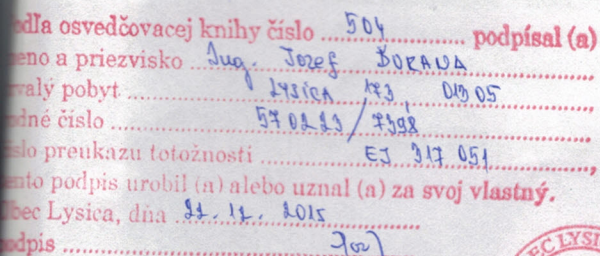 odľa osvedčovacej knihy číslo 504 podpísal (a)
eno a priezvisko Ing. Jozef BORAŇA
valý pobyt LYSICA 173, 013 05,
odné číslo 570223/7398
íslo preukazu totožnosti EJ 317 051,
ento podpis urobil (a) alebo uznal (a) za svoj vlastný.
Obec Lysica, dňa 22.12.2015
odpis
EC LYSI